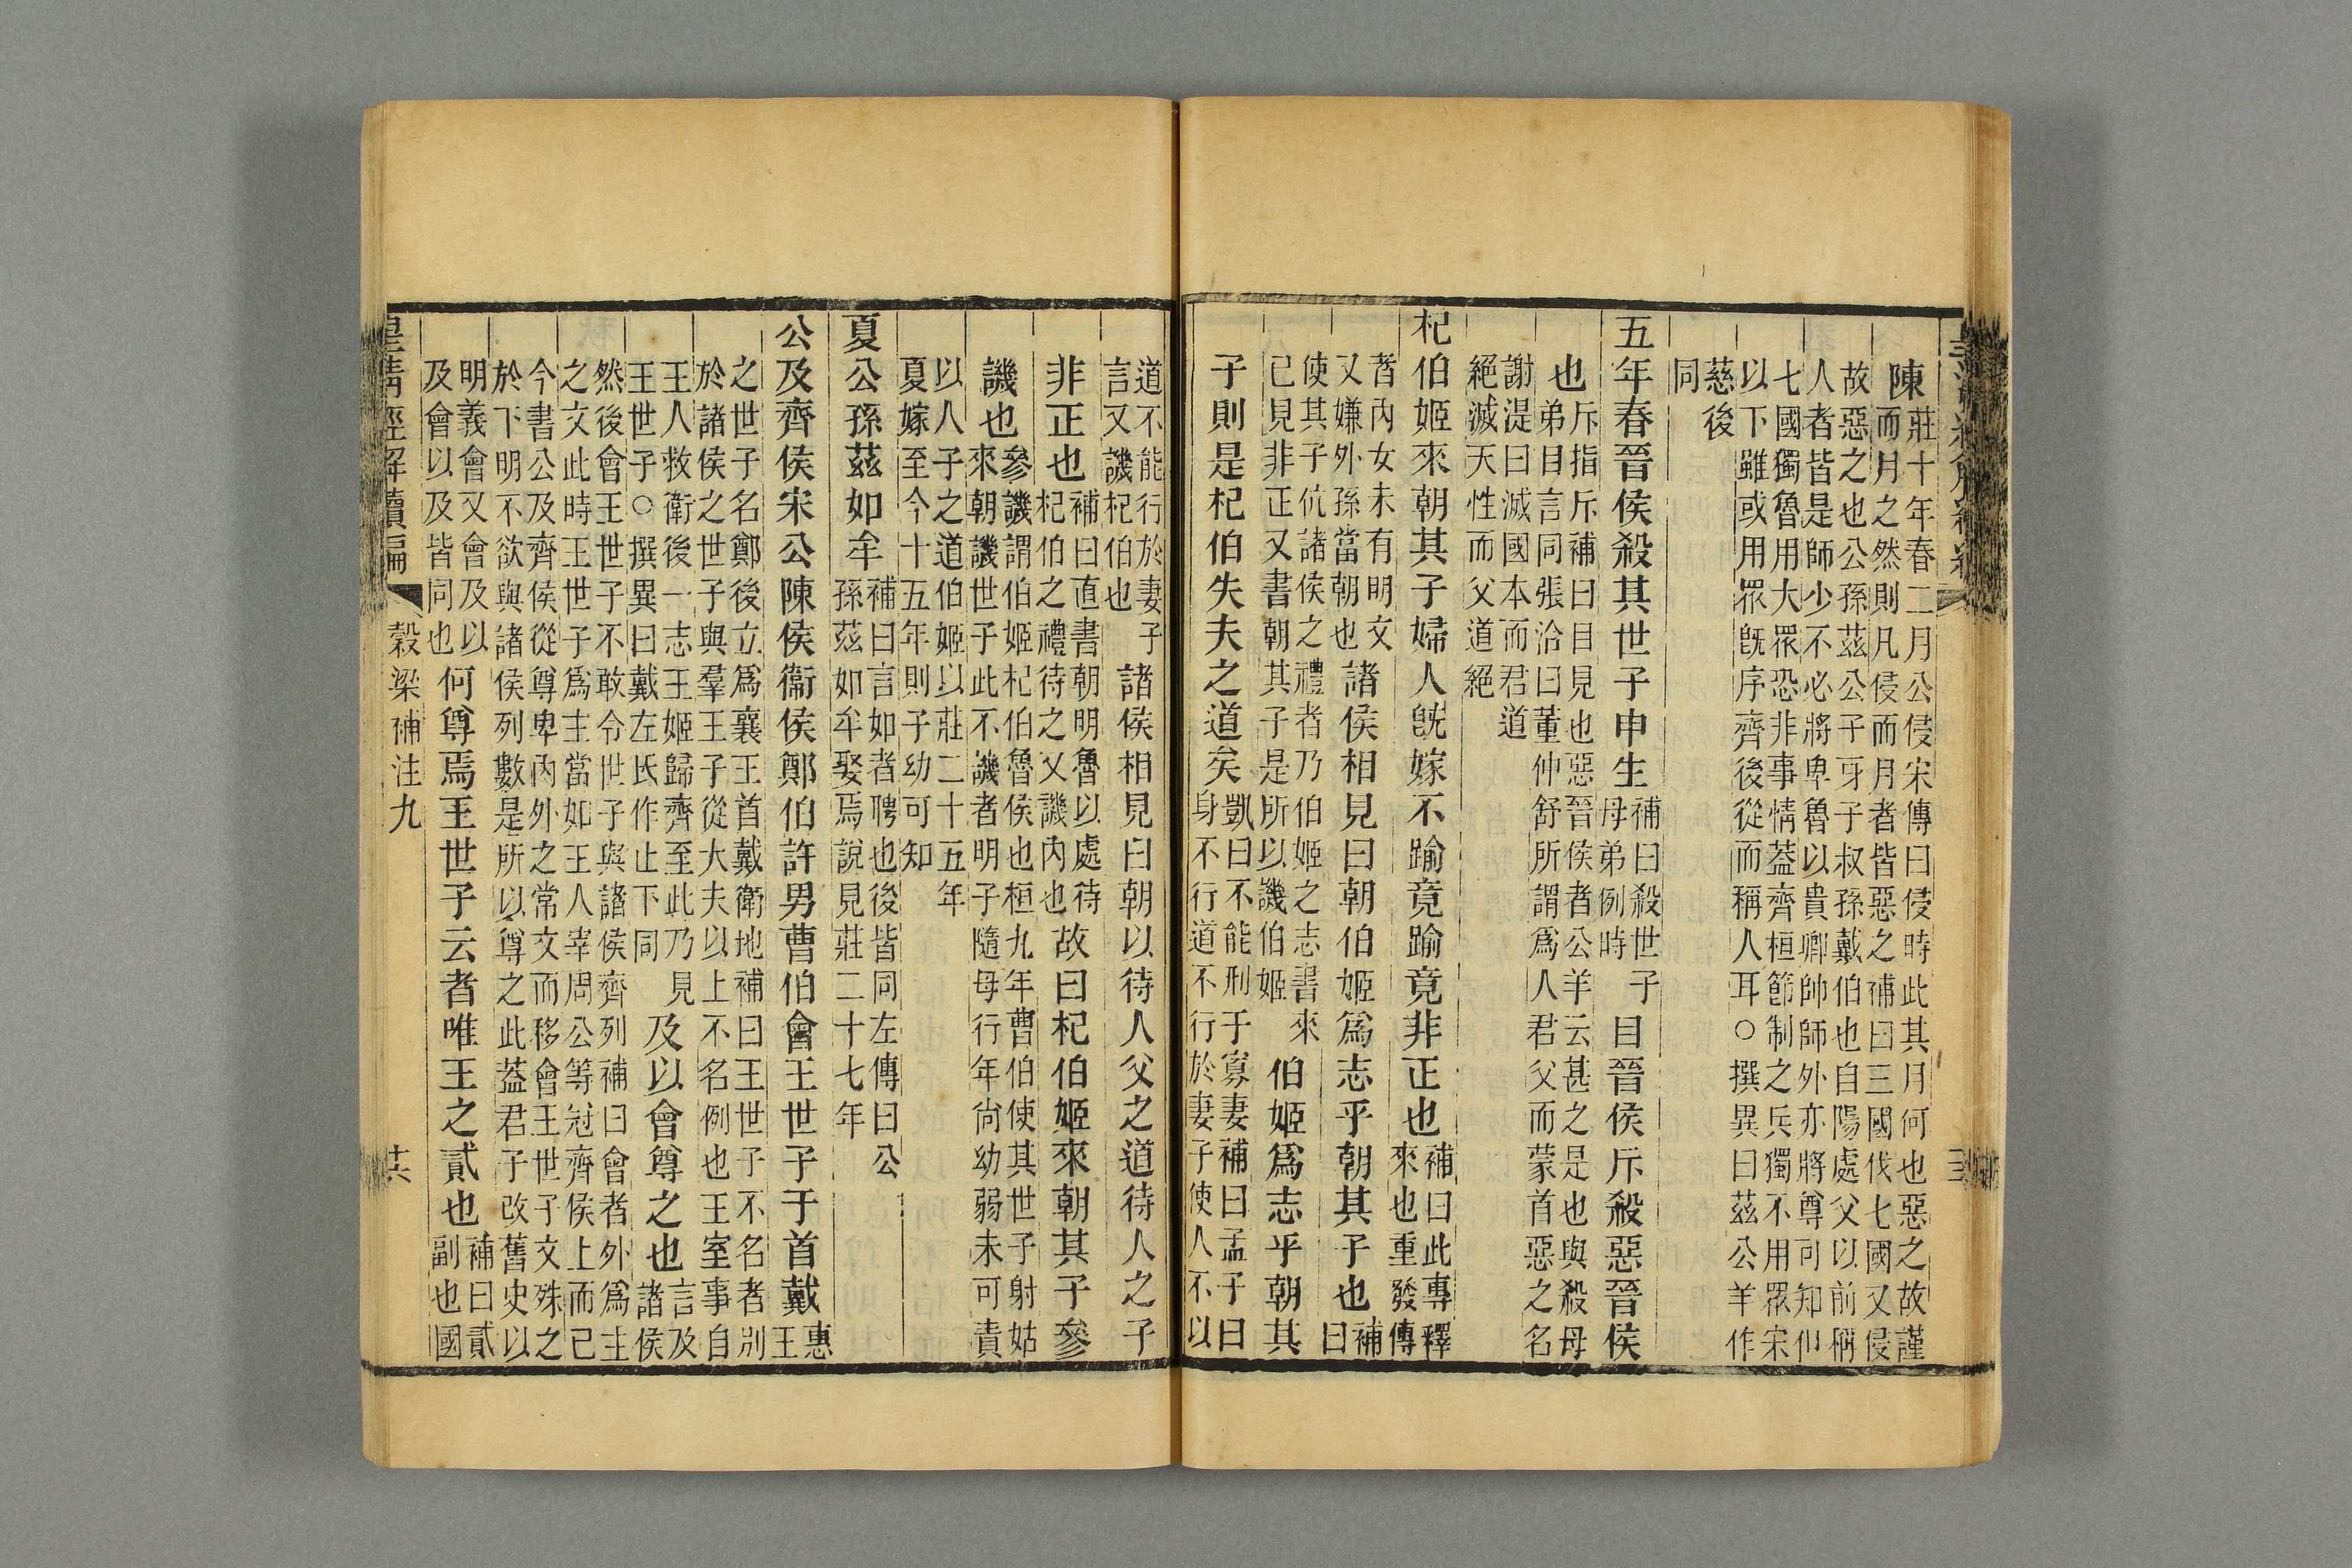 陳莊十年春二月公侵宋傳曰侵時此其月何也惡之故謹
而月之然則凡侵而月者皆惡之補曰三國伐七國又侵
故惡之也公孫茲公子牙子叔孫戴伯也自陽處父以前稱
人者皆是師少不必將卑魯以貴卿帥師外亦將尊可知但
七國獨魯用大眾恐非事情葢齊桓節制之兵獨不用眾宋
以下雖或用眾旣序齊後從而稱人耳○撰異曰茲公羊作
慈後
同
五年春晉侯殺其世子申生補曰殺世子
母弟例時目晉侯斥殺惡晉侯
也斥指斥補曰目見也惡晉侯者公羊云甚之是也與殺母
弟目言同張洽曰董仲舒所謂爲人君父而蒙首惡之名
謝湜曰滅國本而君道
絕滅天性而父道絕
杞伯姬來朝其子婦人旣嫁不踰竟踰竟非正也補曰此專釋
來也重發傳
者內女未有明文
又嫌外孫當朝也諸侯相見曰朝伯姬爲志乎朝其子也補
曰
使其子伉諸侯之禮者乃伯姬之志書來
已見非正又書朝其子是所以譏伯姬伯姬爲志乎朝其
子則是杞伯失夫之道矣凱曰不能刑于寡妻補曰孟子曰
身不行道不行於妻子使人不以
道不能行於妻子
言又譏杞伯也諸侯相見曰朝以待人父之道待人之子
非正也補曰直書朝明魯以處待
杞伯之禮待之又譏內也故曰杞伯姬來朝其子參
譏也參譏謂伯姬杞伯魯侯也桓九年曹伯使其世子射姑
來朝譏世子此不譏者明子隨母行年尚幼弱未可責
以人子之道伯姬以莊二十五年
夏嫁至今十五年則子幼可知
夏公孫茲如牟補曰言如者聘也後皆同左傳曰公
孫茲如牟娶焉說見莊二十七年
公及齊侯宋公陳侯衞侯鄭伯許男曹伯會王世子于首戴惠
王
之世子名鄭後立爲襄王首戴衛地補曰王世子不名者別
於諸侯之世子與羣王子從大夫以上不名例也王室事自
王人救衛後一志王姬歸齊至此乃見
王世子○撰異曰戴左氏作止下同及以會尊之也言及
諸侯
然後會王世子不敢令世子與諸侯齊列補曰會者外爲主
之文此時王世子爲主當如王人宰周公等冠齊侯上而已
今書公及齊侯從尊卑內外之常文而移會王世子文殊之
於下明不欲與諸侯列數是所以尊之此葢君子改舊史以
明義會又會及以
及會以及皆同也何尊焉王世子云者唯王之貳也補曰貳
副也國
皇清經解續編 穀梁補注九